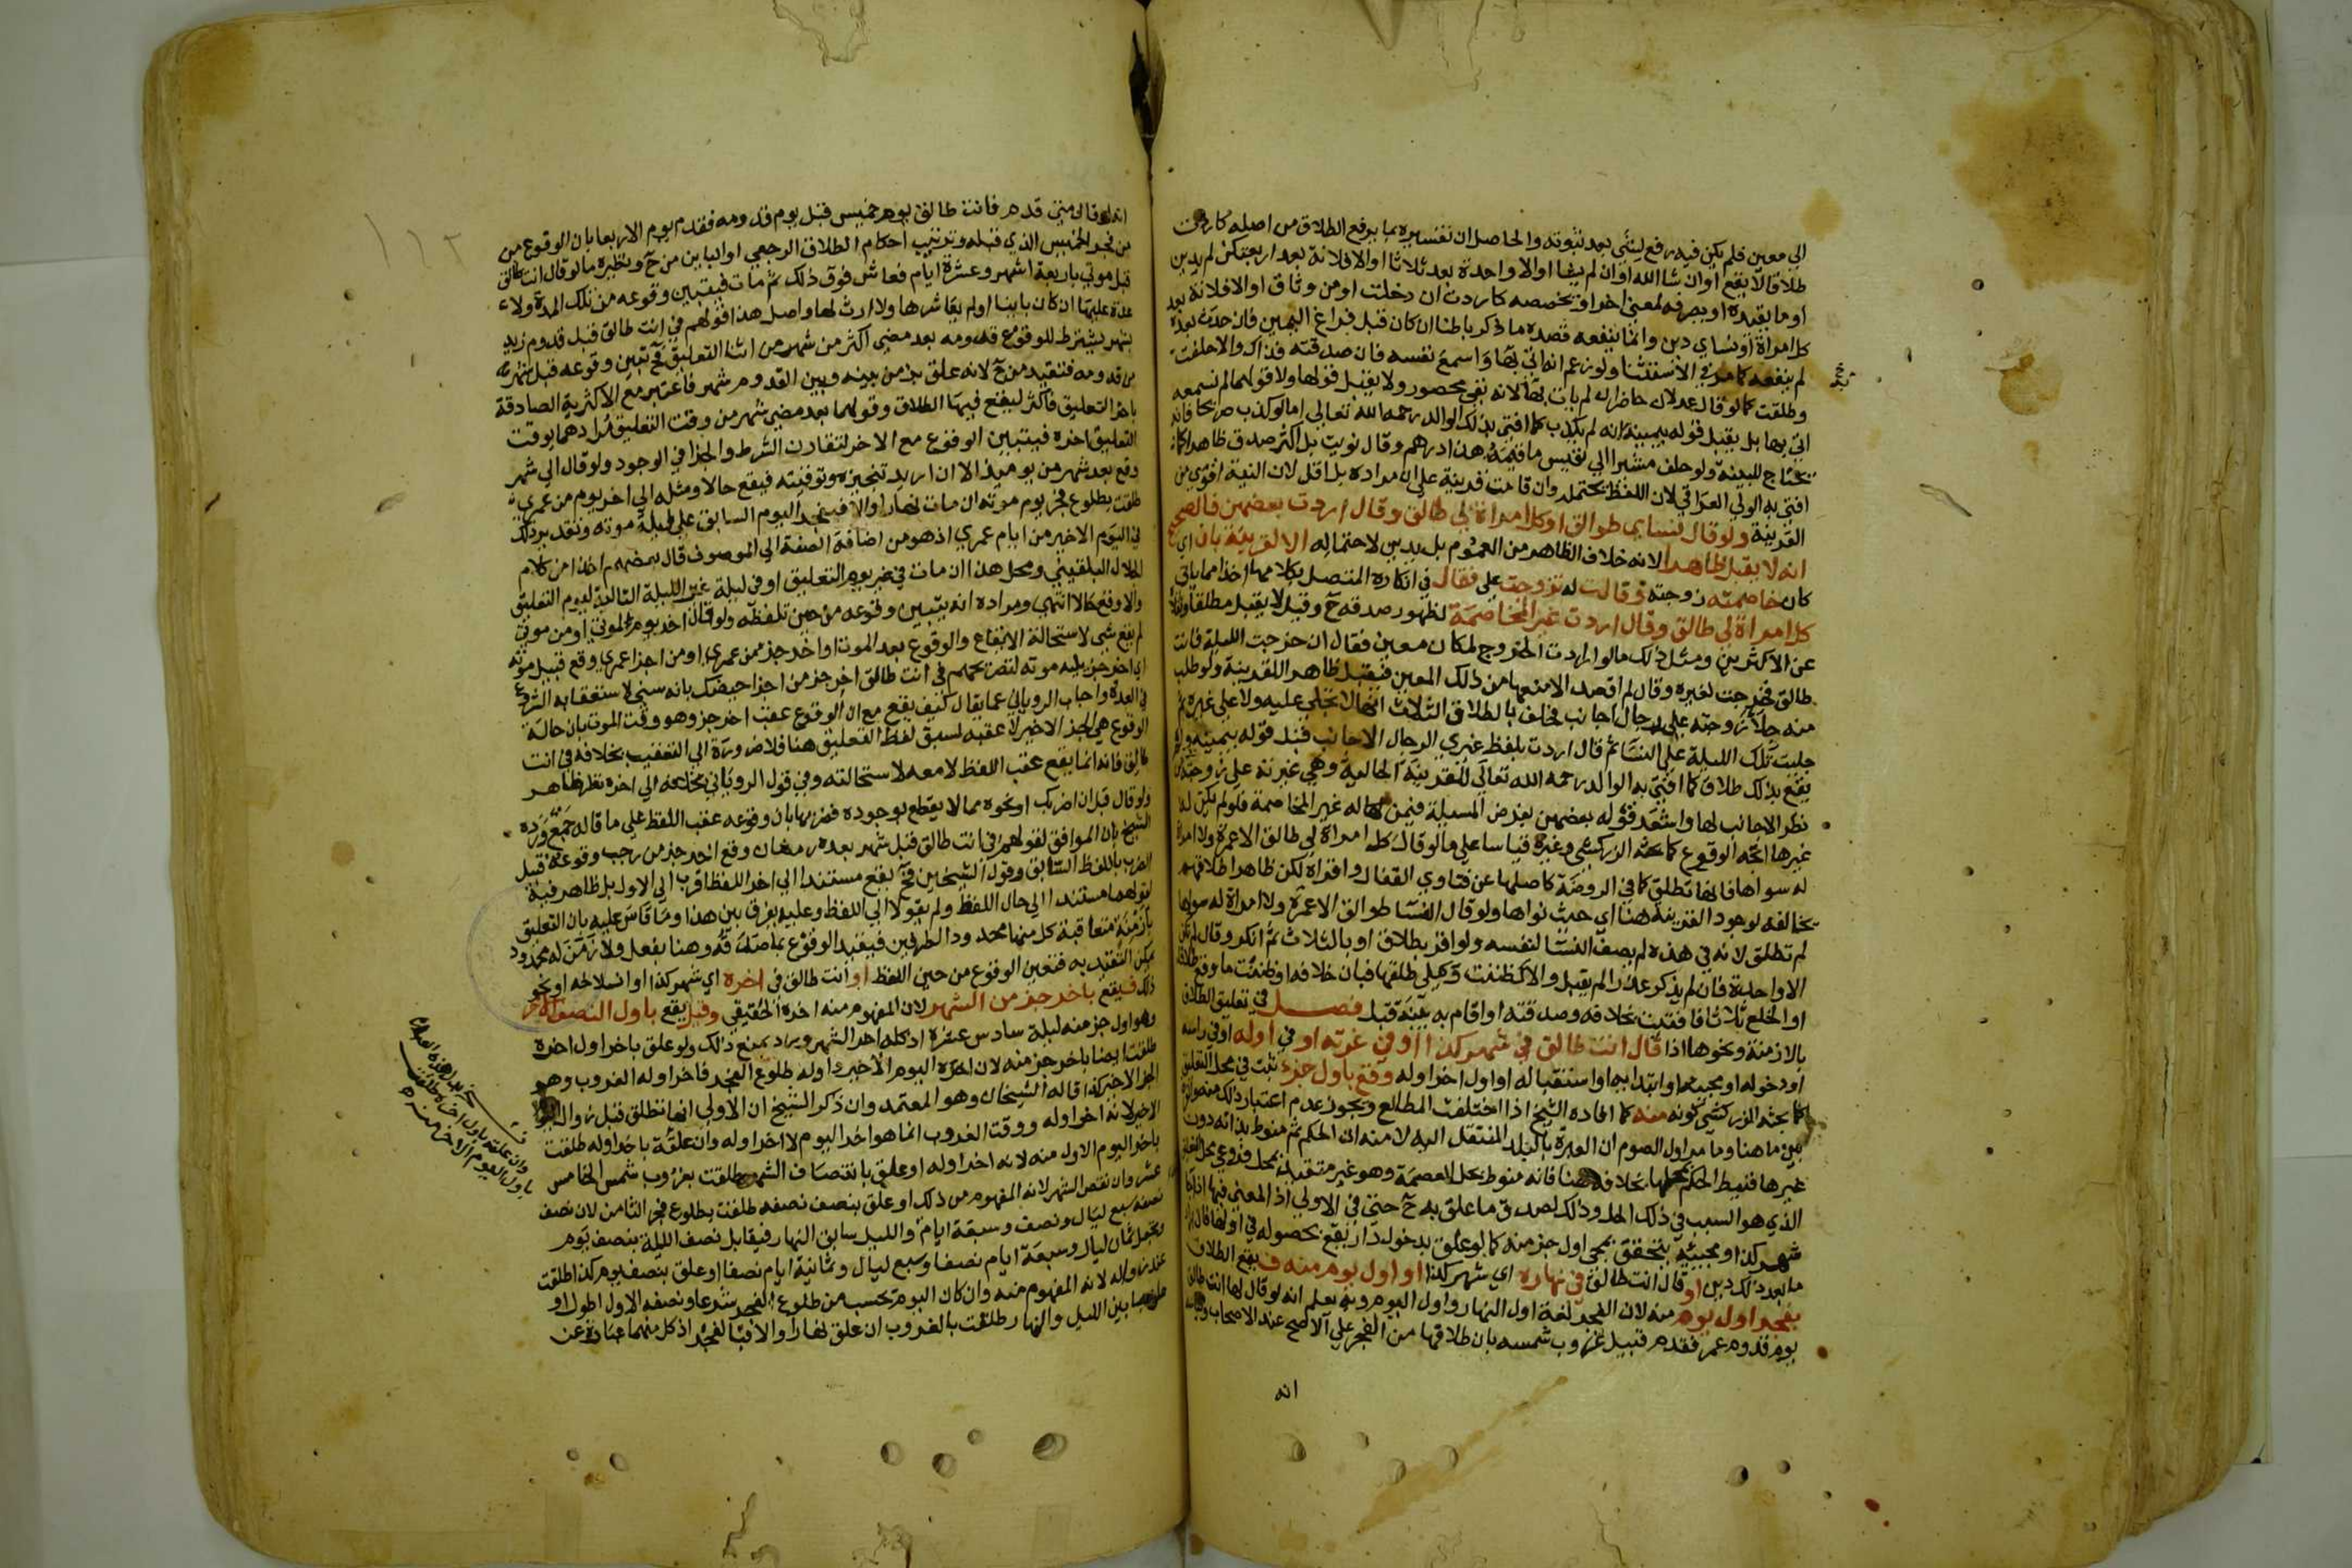 الى معين فلم يكن فيه رفع لشئ بعد ثبوته والحاصل ان تفسيره بما يرفع الطلاق من اصله كاردت
طلاقا لا يقع او ان شا الله او ان لم يشا او الا واحدة بعد ثلاثا او الا فلانة بعد اربعتكن لم يدين
او ما يقيده او يصرفه لمعنى اخر او يخصصه كاردت ان دخلت او من وثاق او الا فلانة بعد
كل امراة او نساي دين وانما ينفعه قصده ما ذكر باطنا ان كان قبل فراغ اليمين فان حدث بعده
لم ينفعه كما مر في الاستثنا ولو زعم انه اتى بها واسمع نفسه فان صدقته فذاك والا حلفت
وطلقت كما لو قال عدلان حاضران لم يات بها لانه نفي محصور ولا يقبل قولها ولا قولهما لم نسمعه
اتى بها بل يقبل قوله بيمينه انه لم يكذب كما افتى بذلك الوالد رحمه الله تعالى اما لو كذب صريحا فانه
يحتاج للبينة ولو حلف مشيرا الى نفيس ما قيمة هذا درهم وقال نويت بل اكثر صدق ظاهرا كما
افتى به الولي العراقي لان اللفظ يحتمله وان قامت قرينة على ان مراده بل اقل لان النية اقوى من
القرينة ولو قال نساي طوالق او كل امراة لي طالق وقال اردت بعضهن فالصحيح
انه لا يقبل ظاهرا لانه خلاف الظاهر من العموم بل يدين لاحتماله الا لقرينة بان اي
كان خاصمته زوجته وقالت له تزوجت علي فقال في انكاره المتصل بكلامها اخذا مما ياتي
كل امراة لي طالق وقال اردت غير المخاصمة لظهور صدقه ح وقيل لا يقبل مطلقا ونقلاه
عن الاكثرين ومثل ذلك ما لو ارادت الخروج لمكان معين فقال ان خرجت الليلة فانت
طالق فخرجت لغيره وقال لم اقصد الا منعها من ذلك المعين فيقبل ظاهرا للقرينة ولو طلب
منه جلا زوجته على رجال اجانب فحلف بالطلاق الثلاث انها لا تجلى عليه ولا على غيره ثم
جليت تلك الليلة على النسا ثم قال اردت بلفظ غيري الرجال الاجانب قبل قوله بيمينه ولم
يقع بذلك طلاق كما افتى به الوالد رحمه الله تعالى للقرينة الحالية وهي غيرته على زوجته من
نظر الاجانب لها واشعر قوله بعضهن بفرض المسيلة فيمن له غير المخاصمة فلو لم يكن له
غيرها اتجه الوقوع كما بحثه الزركشي وغيره قياسا على ما لو قال كل امراة لي طالق الا عمرة ولا امراة
له سواها فانها تطلق كما في الروضة كاصلها عن فتاوى القفال واقراه لكن ظاهر اطلاقهم
يخالفه لوجود القرينة هنا اي حيث نواها ولو قال النسا طوالق الا عمرة ولا امراة له سواها
لم تطلق لانه في هذه لم يضف النسا لنفسه ولو اقر بطلاق او بالثلاث ثم انكر وقال لم يكن
الا واحدة فان لم يذكر عذرا لم يقبل والا كظننت وكيلي طلقها فبان خلافه او ظننت ما وقع طلاقا
او الخلع ثلاثا فافتيت بخلافه وصدقته او اقام به بينة قبل فصل في تعليق الطلاق
بالازمنة ونحوها اذا قال انت طالق في شهر كذا او في غرته او في اوله او في راسه
او دخوله او مجيئه او ابتدايه او استقباله او اول اخر اوله وقع باول جزء ثبت في محل التعليق
كما بحثه الزركشي كونه منه كما افاده الشيخ اذا اختلفت المطالع ويجوز عدم اعتبار ذلك
بين ما هنا وما مر اول الصوم ان العبرة بالبلد المنتقل اليه لا منه ان الحكم ثم منوط بذاته دون
غيرها فنيط الحكم بمحلها بخلافه هنا فانه منوط بحل العصمة وهو غير متقيد بمحل فروعي محل التعليق
الذي هو السبب في ذلك الحل وذلك لصدق ما علق به ح حتى في الاولى اذ المعنى فيها اذا جا
شهر كذا ومجيئه يتحقق بمجي اول جزء منه كما لو علق بدخول دار يقع بحصوله في اولها فان اراد
ما بعد ذلك دين او قال انت طالق في نهاره اي شهر كذا او اول يوم منه فيقع الطلاق
بفجر اول يوم منه لان الفجر لغة اول النهار واول اليوم وبه يعلم انه لو قال لها انت طالق
يوم قدوم عمر فقدم قبيل غروب شمسه بان طلاقها من الفجر على الاصح عند الاصحاب
انه
انه لو قال متى قدم فانت طالق يوم خميس قبل يوم قدومه فقدم يوم الاربعا بان الوقوع من
من فجر الخميس الذي قبله وترتيب احكام الطلاق الرجعي او الباين من ح ونظيره ما لو قال انت طالق
قبل موتي باربعة اشهر وعشرة ايام فعاش فوق ذلك ثم مات فيتبين وقوعه من تلك المدة ولا
عدة عليها ان كان باينا او لم يعاشرها ولا ارث لها واصل هذا قولهم في انت طالق قبل قدوم زيد
بشهر يشترط للوقوع قدومه بعد مضي اكثر من شهر من اثنا التعليق فح تبين وقوعه قبل شهر
من قدومه فتعتد من ح لانه علق بزمن بينه وبين القدوم شهر فاعتبر مع الاكثرية الصادقة
باخر التعليق فاكثر ليقع فيها الطلاق وقولهما بعد مضي شهر من وقت التعليق مرادهما بوقت
التعليق اخره فيتبين الوقوع مع الاخر لتقارن الشرط والجزا في الوجود ولو قال الى شهر
وقع بعد شهر من يوميذ الا ان اريد تنجيزه وتوقيته فيقع حالا ومثله الى اخر يوم من عمري
طلقت بطلوع فجر يوم موته ان مات نهارا والا فبفجر اليوم السابق على ليلة موته وتقديره ذلك
في اليوم الاخير من ايام عمري اذ هو من اضافة الصفة الى الموصوف قال بعضهم اخذا من كلام
الجلال البلقيني ومحل هذا ان مات في غير يوم التعليق او في ليلة غير الليلة التالية ليوم التعليق
والا وقع حالا انتهى ومراده انه يتبين وقوعه من حين تلفظه ولو قال اخر يوم لموتي او من موتي
لم يقع شي لاستحالة الايقاع والوقوع بعد الموت او اخر جزء من عمري او من اجزا عمري وقع قبيل موته
اي اخر جزء يليه موته لتصريحهم في انت طالق اخر جزء من اجزا حيضك بانه سني لاستعقابه الشروع
في العدة واجاب الروياني عما يقال كيف يقع مع ان الوقوع عقب اخر جزء وهو وقت الموت بان حالة
الوقوع هي الجزء الاخير لا عقبه لسبق لفظ التعليق هنا فلا ضرورة الى التعقيب بخلافه في انت
طالق فانه انما يقع عقب اللفظ لا معه لاستحالته وفي قول الروياني بخلافه الى اخره نظر ظاهر
ولو قال قبل ان اضربك او نحوه مما لا يقطع بوجوده فضربها بان وقوعه عقب اللفظ على ما قاله جمع ورده
الشيخ بان الموافق لقولهم في انت طالق قبل شهر بعده رمضان وقع اخر جزء من رجب وقوعه قبيل
الضرب باللفظ السابق وقول الشيخين فح يقع مستندا الى اخر اللفظ اقرب الى الاول بل ظاهر فيه
لقولهما مستندا الى حال اللفظ ولم يقولا الى اللفظ وعليه يفرق بين هذا وما قاس عليه بان التعليق
بازمنة متعاقبة كل منها محدود الطرفين فيقيد الوقوع بما صدقه وهنا بفعل ولا زمن له محدود
يمكن التقيد به فتعين الوقوع من حين اللفظ او انت طالق في اخره اي شهر كذا او انسلاخه او نحو
ذلك فيقع باخر جزء من الشهر لان المفهوم منه اخره الحقيقي وقيل يقع باول النصف الاخر
وهو اول جزء منه ليلة سادس عشره اذ كله اخر الشهر ويرد بمنع ذلك ولو علق باخر اول اخره
طلقت ايضا باخر جزء منه لان اخره اليوم الاخير واوله طلوع الفجر فاخر اوله الغروب وهو
الجزء الاخير كذا قاله الشيخان وهو المعتمد وان ذكر الشيخ ان الاولى انها تطلق قبل زوال اليوم
الاخير لانه اخر اوله ووقت الغروب انما هو اخر اليوم لا اخر اوله وان علقه باخر اوله طلقت
باخر اليوم الاول منه لانه اخر اوله او علق بانتصاف الشهر طلقت بغروب شمس الخامس
عشر وان نقص الشهر لانه المفهوم من ذلك او علق بنصف نصفه طلقت بطلوع فجر الثامن لان نصف
نصفه سبع ليال ونصف وسبعة ايام ونصف والليل سابق النهار فيقابل نصف الليلة بنصف يوم
ويجعل ثمان ليال وسبعة ايام نصفا وسبع ليال وثمانية ايام نصفا او علق بنصف يوم كذا طلقت
عند زواله لانه المفهوم منه وان كان اليوم يحسب من طلوع الفجر شرعا ونصفه الاول اطول او
بما بين الليل والنهار طلقت بالغروب ان علق نهارا والا فبالفجر اذ كل منهما عبارة عن
وان علقه باول اخره طلقت
باول اليوم الاخير منه
١١٢